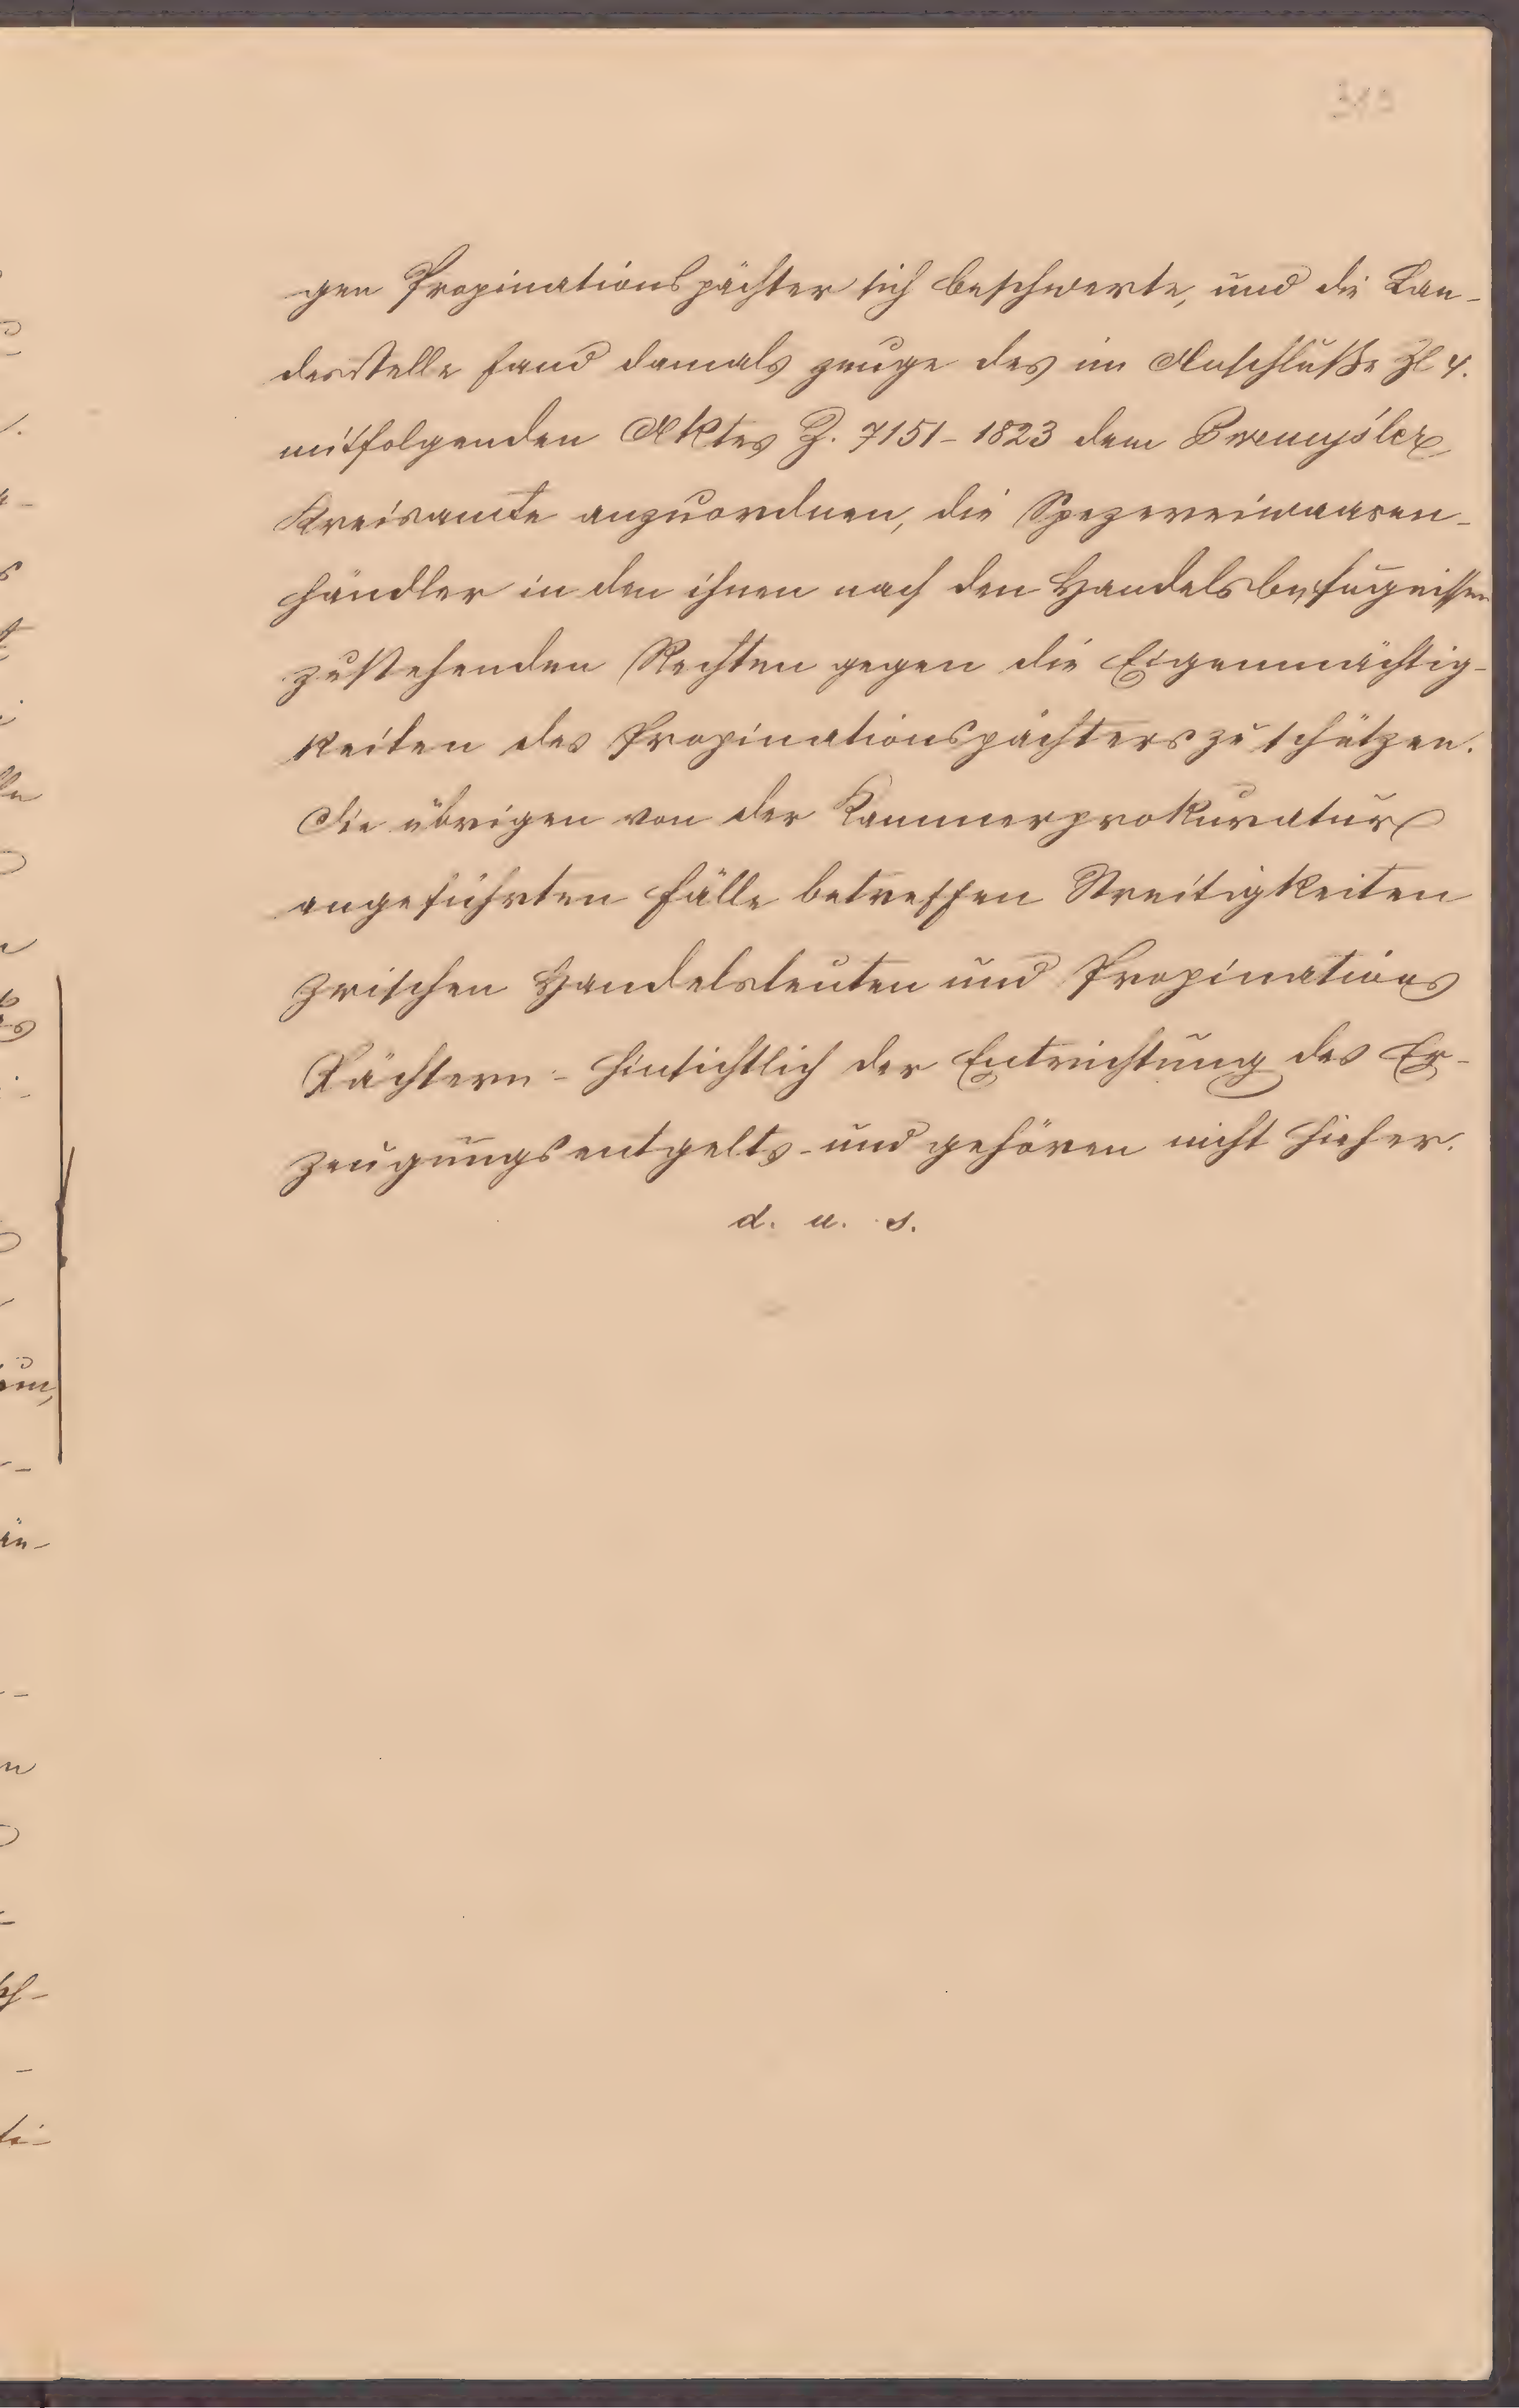 319
gen Propinationspächter sich beschwerte, und die Lan-
desstelle fand damals zeuge des im Anschluße Zl 4.
mitfolgenden Aktes Z. 7151-1823 dem Przemyśler
Kreisamte anzuordnen, die Spezereiwaaren-
händler in den ihnen nach den Handelsbefugnissen
zustehenden Rechten gegen die Eigenmächtig-
keiten des Propinationspächters zu schützen.
Die übrigen von der Kammerprokuratur
angeführten Fälle betreffen Streitigkeiten
zwischen Handelsleuten und Propinations
Pächtern - hinsichtlich der Entrichtung des Er-
zeugungsentgelts - und gehören nicht hieher.
d. u. s.